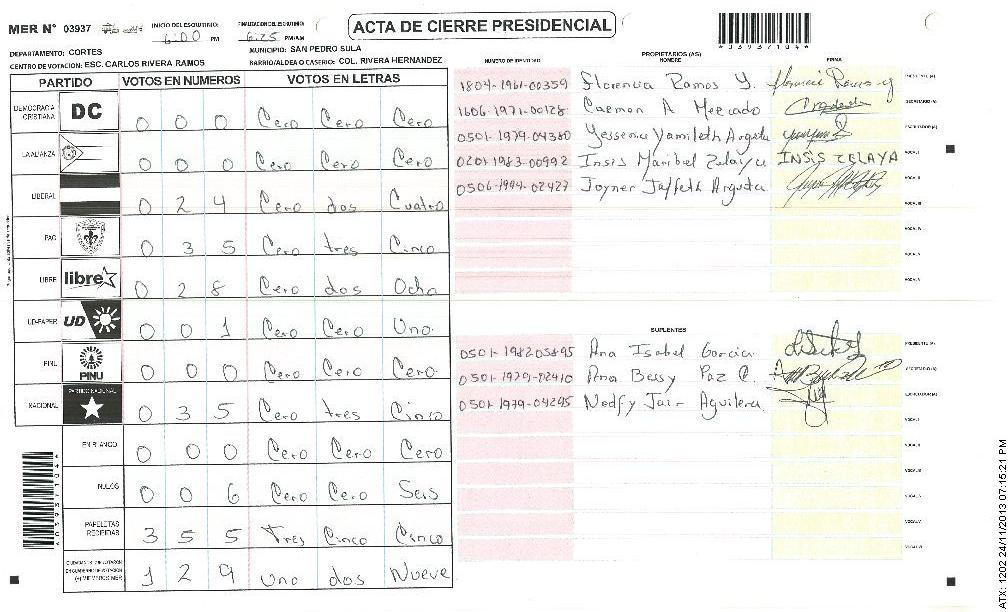 MER N° 03937
INICIO DEL ESCRUTINIO: 6:00 PM
FINALIZACION DEL ESCRUTINIO: 6:25 PM/AM
ACTA DE CIERRE PRESIDENCIAL
DEPARTAMENTO: CORTES
MUNICIPIO: SAN PEDRO SULA
CENTRO DE VOTACION: ESC. CARLOS RIVERA RAMOS
BARRIO/ALDEA O CASERIO: COL. RIVERA HERNANDEZ
PARTIDO VOTOS EN NUMEROS VOTOS EN LETRAS
DEMOCRACIA CRISTIANA DC 0 0 0 Cero Cero Cero
LA ALIANZA 0 0 0 Cero Cero Cero
LIBERAL 0 2 4 Cero dos Cuatro
PAC 0 3 5 Cero tres Cinco
LIBRE libre 0 2 8 Cero dos Ocho
UD-FAPER UD 0 0 1 Cero Cero Uno
PINU PINU 0 0 0 Cero Cero Cero
NACIONAL PARTIDO NACIONAL 0 3 5 Cero tres Cinco
EN BLANCO 0 0 0 Cero Cero Cero
NULOS 0 0 6 Cero Cero Seis
PAPELETAS RECIBIDAS 3 5 5 Tres Cinco Cinco
CIUDADANOS QUE VOTARON EN CUADERNO DE VOTACION (+) MIEMBROS MER 1 2 9 Uno dos Nueve
*03937104*
PROPIETARIOS (AS)
NUMERO DE IDENTIDAD NOMBRE FIRMA
1804-1961-00359 Florencia Ramos Y. PRESIDENTE (A)
1606-1971-00128 Carmen A Mercado SECRETARIO (A)
0501-1979-04380 Yessenia Yamileth Argueta ESCRUTADOR (A)
0201-1983-00992 Insis Maribel Zelaya INSIS ZELAYA VOCAL I
0506-1994-02427 Joyner Jaffeth Argueta VOCAL II
VOCAL III
VOCAL IV
VOCAL V
VOCAL VI
SUPLENTES
0501-1982-05895 Ana Isabel Garcia PRESIDENTE (A)
0501-1979-02410 Ana Bessy Paz C. SECRETARIO (A)
0501-1979-04295 Nedfy Jair Aguilera ESCRUTADOR (A)
VOCAL I
VOCAL II
VOCAL III
VOCAL IV
VOCAL V
VOCAL VI
*03937104*
ATX: 1202 24/11/2013 07:15:21 PM